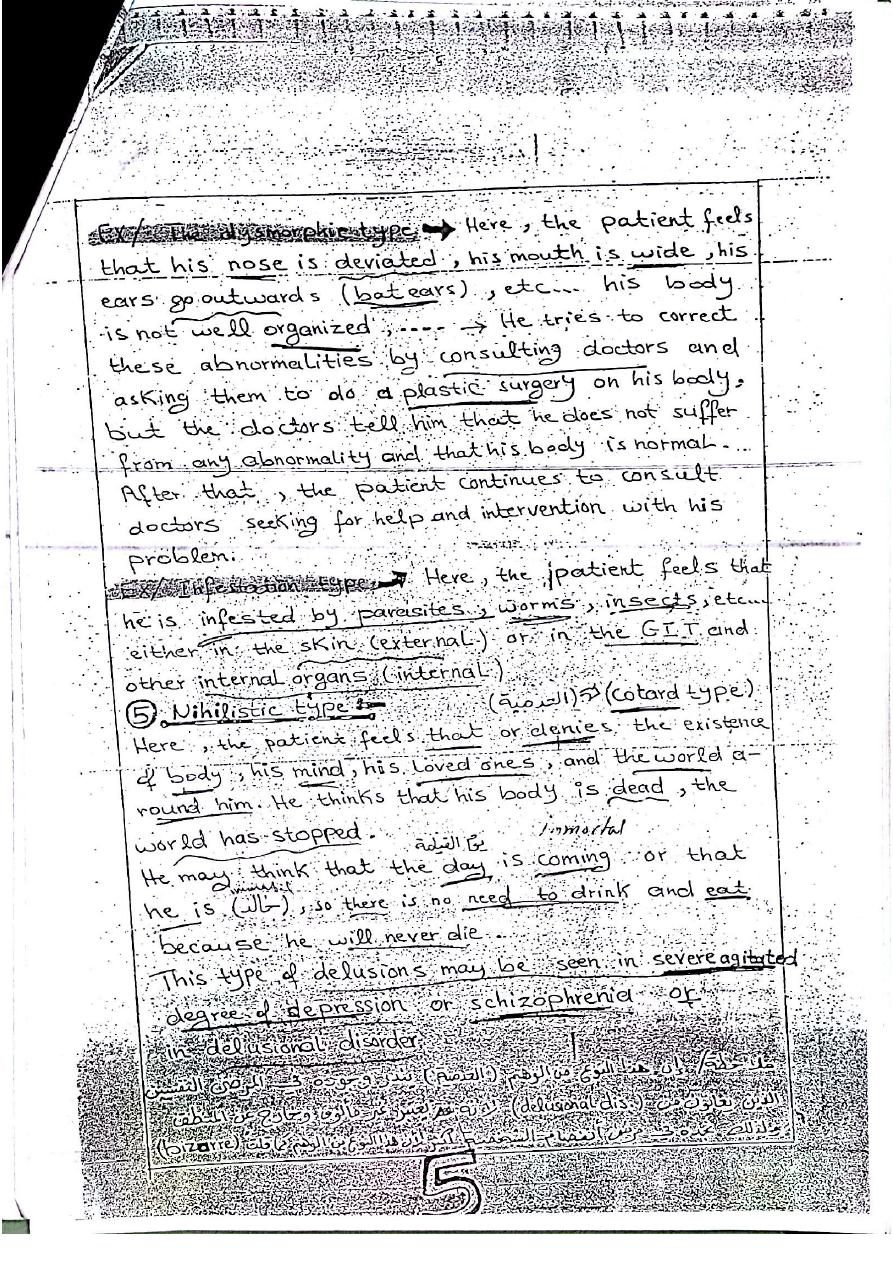 Ex/ The dysmorphic type → Here, the patient feels
that his nose is deviated, his mouth is wide, his
ears go outwards (bat ears), etc... his body
is not well organized, .... → He tries to correct
these abnormalities by consulting doctors and
asking them to do a plastic surgery on his body,
but the doctors tell him that he does not suffer
from any abnormality and that his body is normal....
After that, the patient continues to consult
doctors seeking for help and intervention with his
problem.
Ex/ Infestation type → Here, the patient feels that
he is infested by parasites, worms, insects, etc...
either in the skin (external) or in the G.I.T and
other internal organs (internal)
⑤ Nihilistic type :- (cotard type) (العدمية)
Here, the patient feels that or denies the existence
of body, his mind, his loved ones, and the world a-
round him. He thinks that his body is dead, the
world has stopped.
يوم القيامة Immortal
He may think that the day is coming or that
he is (خالد), so there is no need to drink and eat
because he will never die...
This type of delusions may be seen in severe agitated
degree of depression or schizophrenia or
in delusional disorder.
ملاحظة/ إن هذا النوع من الوهم (العدمية) تندر وجوده في المرضى النفسيين
الذين يعانون من (delusional dis.) لأنه غير مألوف وخارج عن المنطق
(bizarre)
5